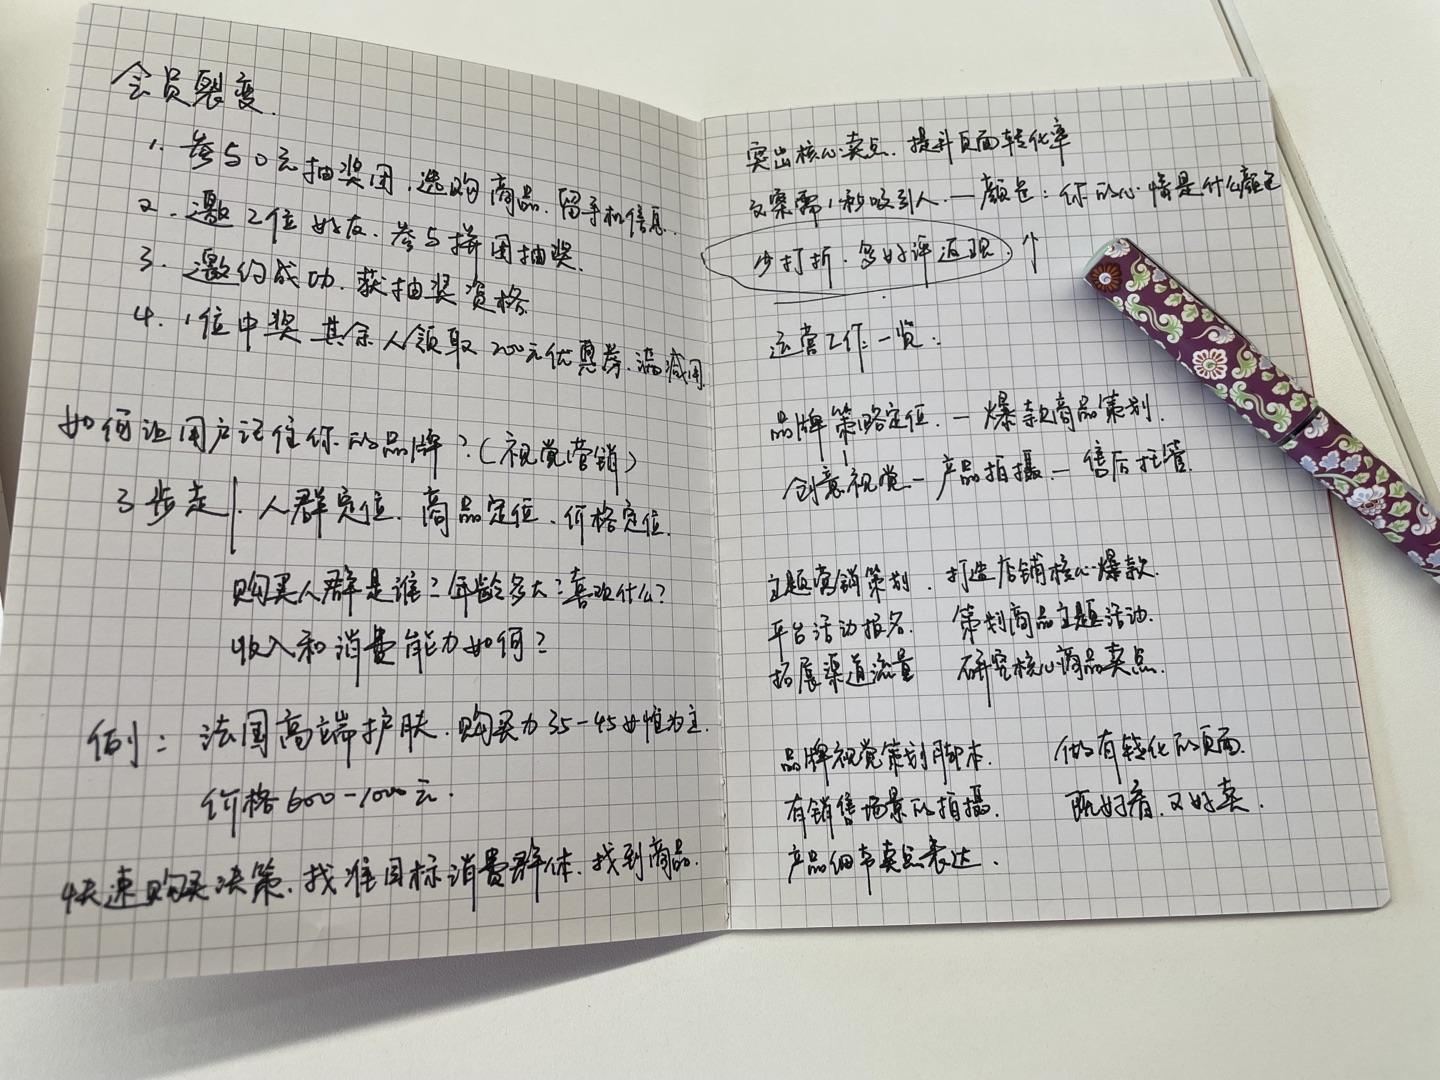 会员裂变.
1. 参与0元抽奖团.选购商品.留手机信息.
2. 邀2位好友.参与拼团抽奖.
3. 邀约成功.获抽奖资格
4. 1位中奖 其余人领取200元优惠券.满减用.
如何让用户记住你的品牌?(视觉营销)
3步走| 人群定位.商品定位.价格定位.
购买人群是谁?年龄多大?喜欢什么?
收入和消费能力如何?
例: 法国高端护肤.购买力35-45女性为主.
价格600-1000元.
快速购买决策.找准目标消费群体.找到商品.
突出核心卖点.提升页面转化率
文案需1秒吸引人.—颜色:你的心情是什么颜色
少打折.多好评返现.↑
运营工作一览:
品牌策略定位.—爆款商品策划.
创意视觉—产品拍摄.—售后托管.
主题营销策划.打造店铺核心爆款.
平台活动报名. 策划商品主题活动.
拓展渠道流量 研究核心商品卖点.
品牌视觉策划脚本. 做有转化的页面.
有销售场景的拍摄. 既好看.又好卖.
产品细节卖点表达.